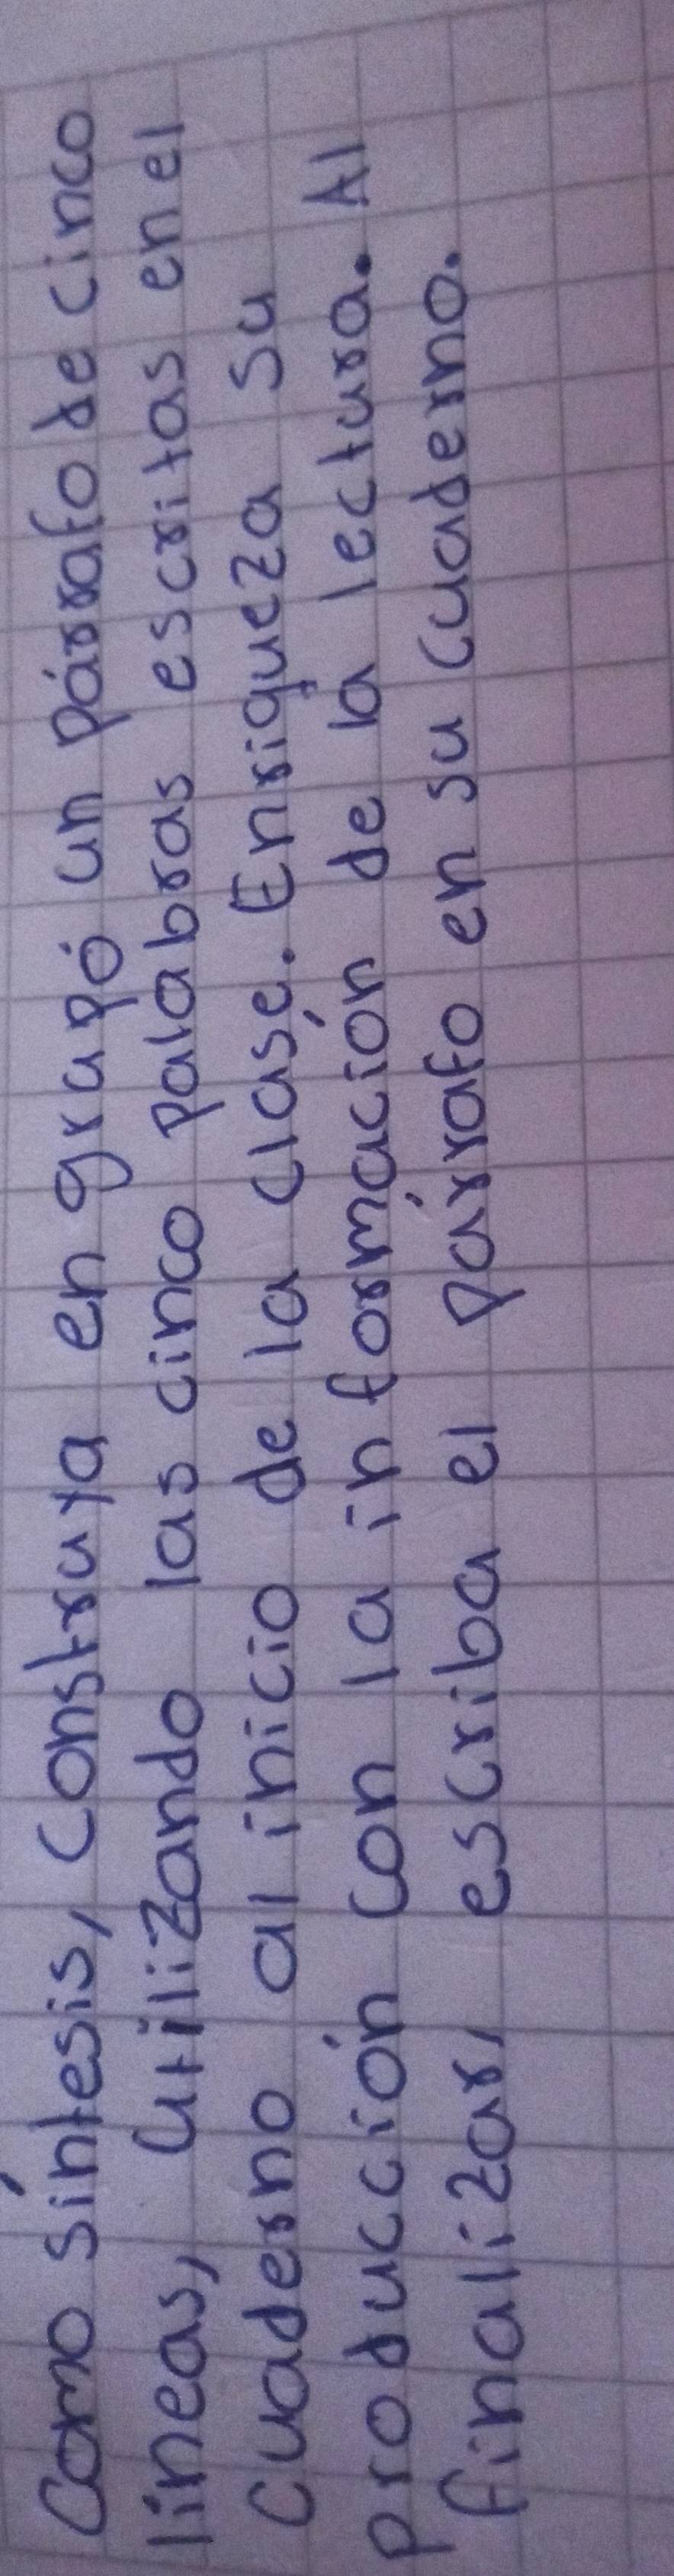 Como síntesis, construya en grupo un párrafo de cinco
líneas, utilizando las cinco palabras escritas en el
cuaderno al inicio de la clase. Enriqueza su
producción con la información de la lectura. Al
finalizar, escriba el párrafo en su cuaderno.